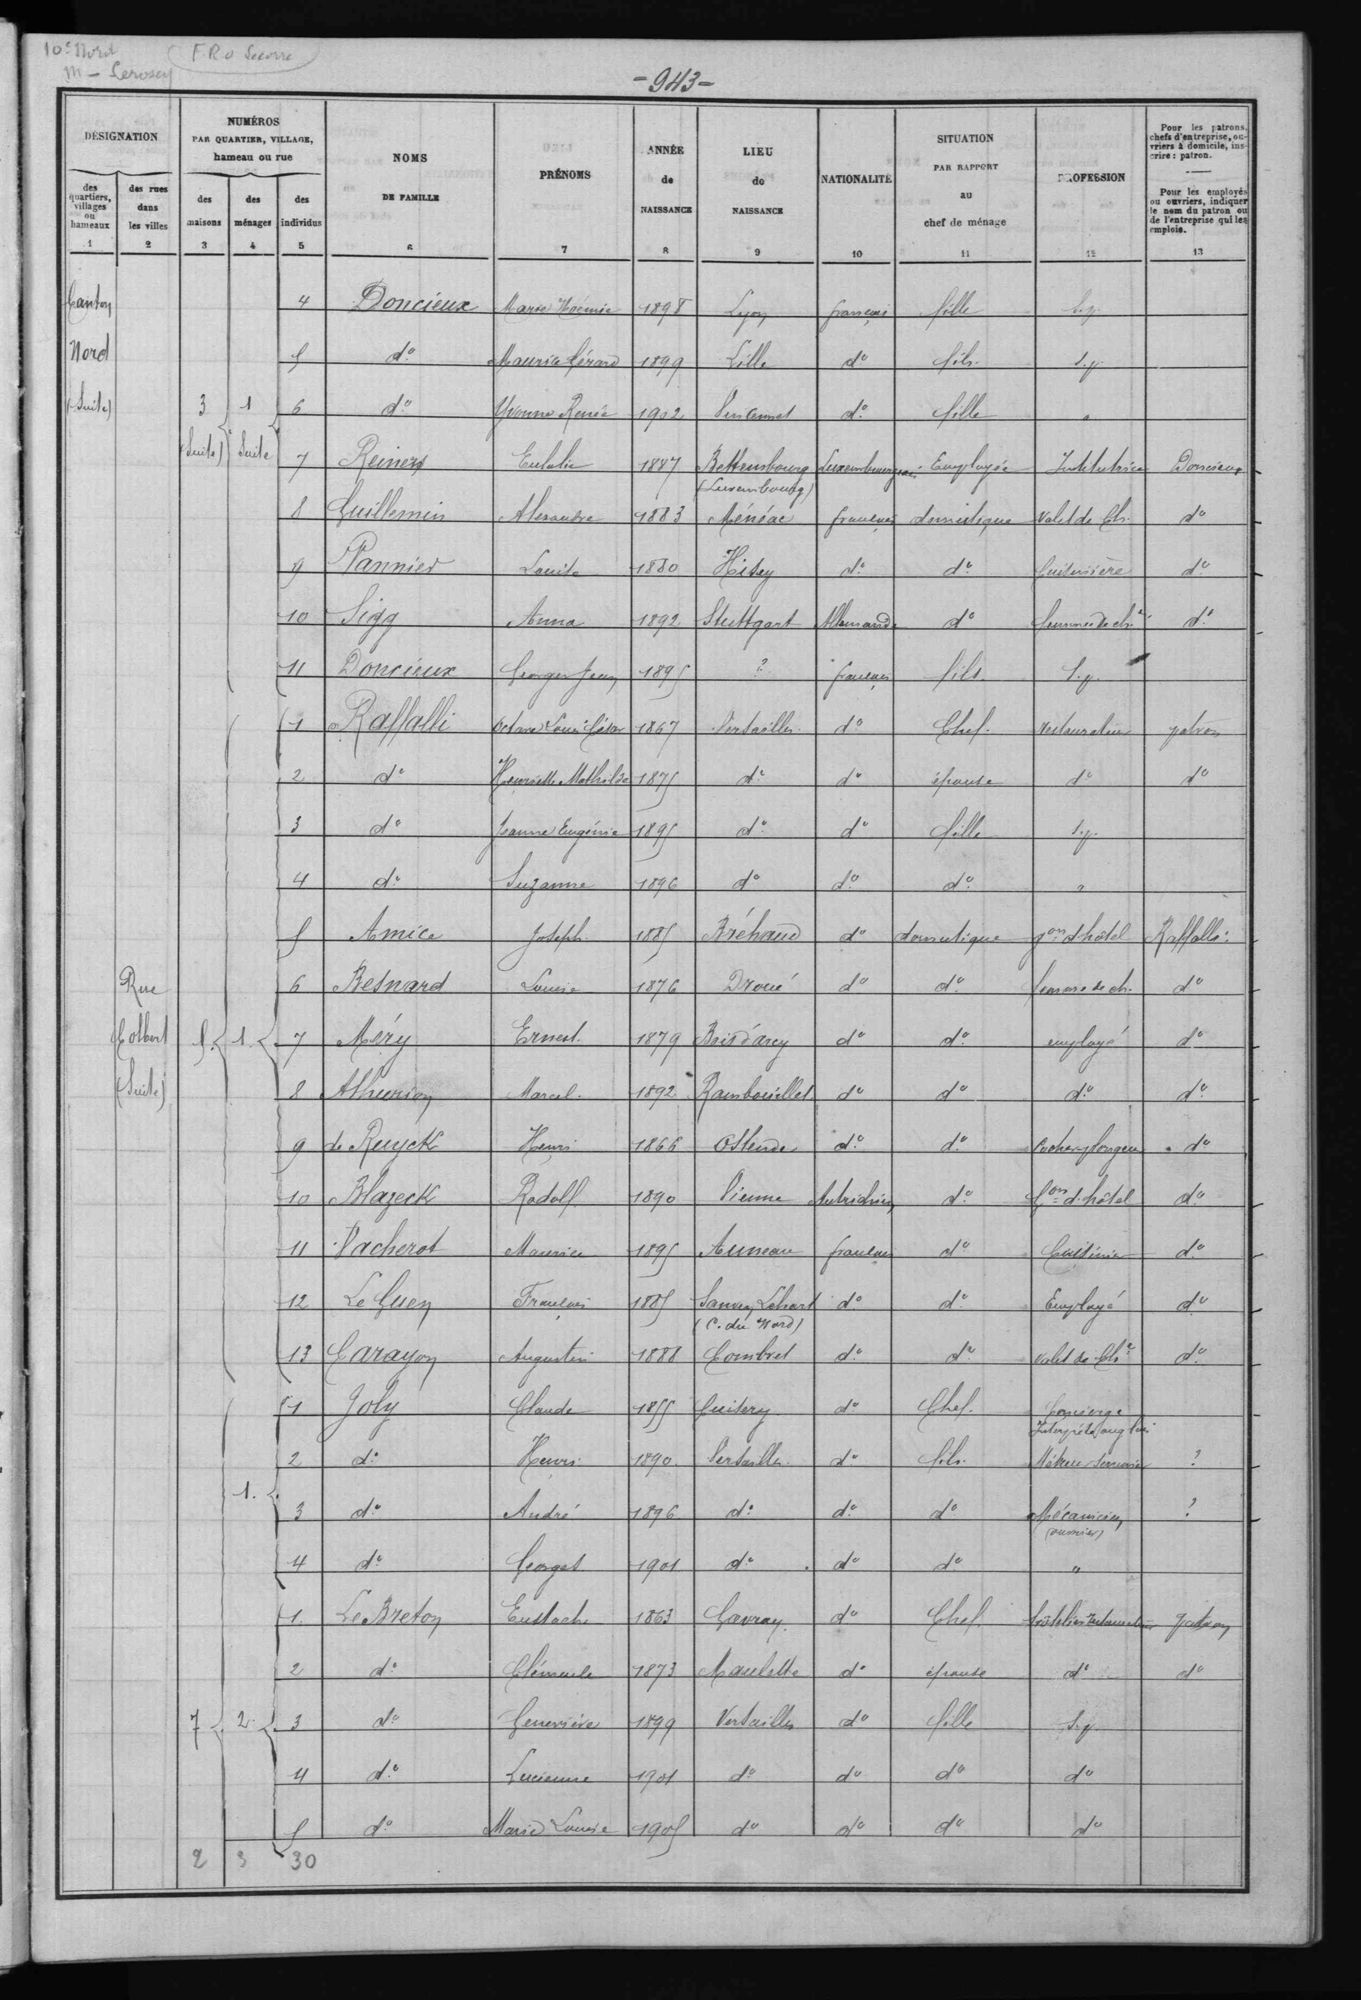 10e Nord
F.R.O Secorre
M - Lerosey
- 943 -
DÉSIGNATION
NUMÉROS
PAR QUARTIER, VILLAGE,
hameau ou rue
NOMS
DE FAMILLE
PRÉNOMS
ANNÉE
de
NAISSANCE
LIEU
de
NAISSANCE
NATIONALITÉ
SITUATION
PAR RAPPORT
au
chef de ménage
PROFESSION
Pour les patrons,
chefs d'entreprise, ou-
vriers à domicile, ins-
crire : patron.
Pour les employés
ou ouvriers, indiquer
le nom du patron ou
de l'entreprise qui les
emploie.
des
quartiers,
villages
ou
hameaux
des rues
dans
les villes
des
maisons
des
ménages
des
individus
1 2 3 4 5 6 7 8 9 10 11 12 13
Canton
Nord
(Suite)
3 (Suite) 1 Suite
4 Doncieux Marie Noémie 1898 Lyon français fille s.p.
5 do Maurice Gérard 1899 Lille do fils s.p.
6 do Yvonne Renée 1902 Vincennes do fille "
7 Reiners Eulalie 1887 Bettembourg Luxembourgeois Employée Institutrice Doncieux
(Luxembourg)
8 Guillemin Alexandre 1883 Ménéac français domestique Valet de Ch. do
9 Pannier Louise 1880 do do Cuisinière do
10 Sigg Anna 1892 Stuttgart Allemande do femme de che do
11 Doncieux Georges Jean 1895 ? français fils s.p.
Rue
Colbert
(Suite)
5 1
1 Raffalli Octave Louis César 1867 Versailles do Chef restaurateur patron
2 do Henriette Mathilde 1875 do do épouse do do
3 do Jeanne Eugénie 1895 do do fille s.p.
4 do Suzanne 1896 do do do "
5 Amice Joseph 1885 Bréhand do domestique gon d'hôtel Raffalli
6 Besnard Louise 1876 Droué do do femme de ch. do
7 Méry Ernest 1879 Bois d'arcy do do employé do
8 Athurion Marcel 1892 Rambouillet do do do do
9 de Ruyck Henri 1866 Ostende do do do
10 Blazeck Rodolf 1890 Vienne Autrichien do Gon d'hôtel do
11 Vacherot Maurice 1895 Auneau français do Cuisinier do
12 Le Guen François 1885 do do Employé do
(C. du Nord)
13 Carayon Augustin 1888 Combret do do Valet de Che do
1
1 Joly Claude 1855 Cuisery do Chef Concierge
Interprète anglais
2 do Henri 1890 Versailles do fils Métreur Serrurier ?
3 do André 1896 do do do Mécanicien ?
(ouvrier)
4 do Georges 1901 do do do "
7 2
1 Le Breton Eustache 1863 Gavray do Chef hôtelier restaurateur patron
2 do Clémence 1873 Maulette do épouse do do
3 do Geneviève 1899 Versailles do fille s.p.
4 do Lucienne 1901 do do do do
5 do Marie Louise 1905 do do do do
2 3 30